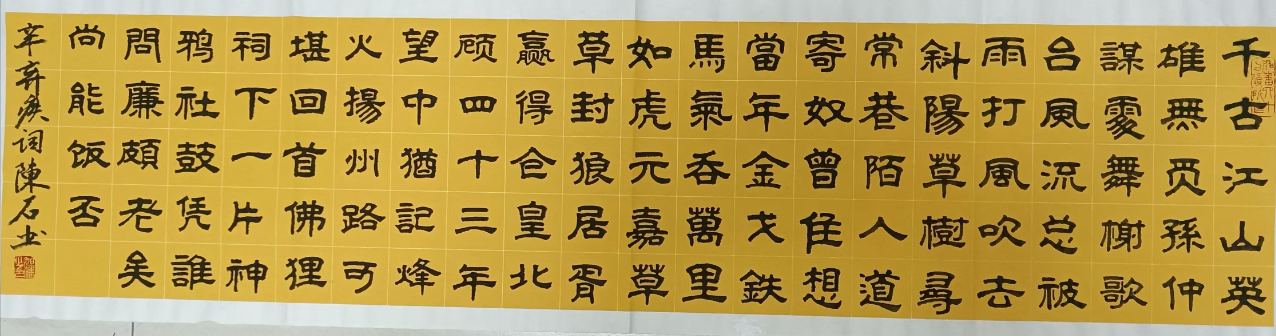 千古江山英
雄無觅孫仲
謀處舞榭歌
台風流总被
雨打風吹去
斜陽草樹尋
常巷陌人道
寄奴曾住想
當年金戈鉄
馬氣吞萬里
如虎元嘉草
草封狼居胥
赢得仓皇北
顾四十三年
望中猶記烽
火揚州路可
堪回首佛狸
祠下一片神
鸦社鼓凭誰
問廉頗老矣
尚能饭否
辛弃疾词陳石书